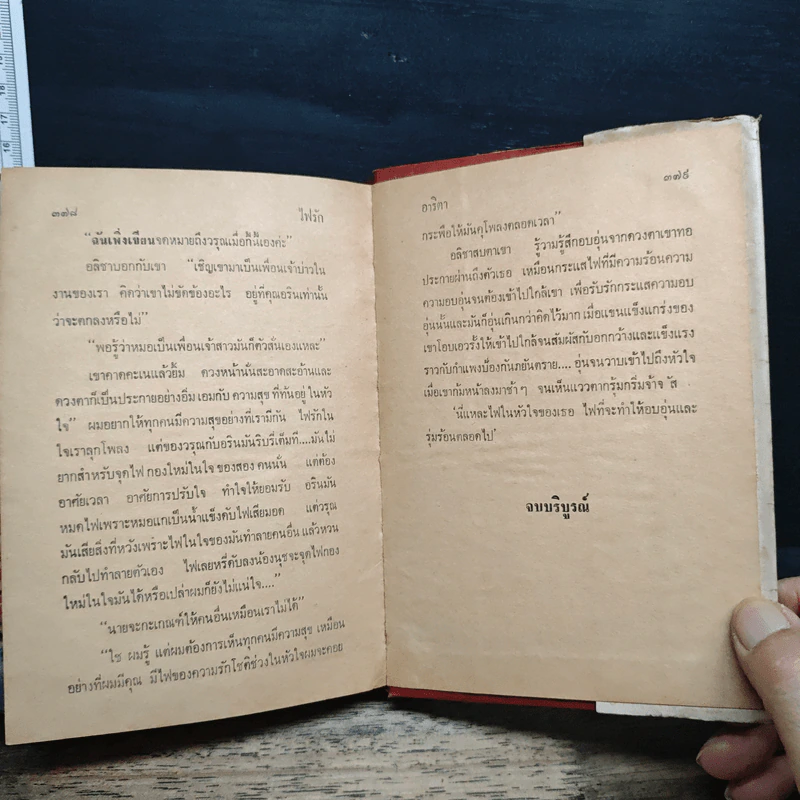 ๓๗๘ ไฟรัก
“ฉันเพิ่งเขียนจดหมายถึงวรุณเมื่อกี้นี้เองค่ะ”
อลิชาบอกกับเขา “เชิญเขามาเป็นเพื่อนเจ้าบ่าวใน
งานของเรา คิดว่าเขาไม่ขัดข้องอะไร อยู่ที่คุณอรินเท่านั้น
ว่าจะตกลงหรือไม่”
“พอรู้ว่าหมอเป็นเพื่อนเจ้าสาวมันก็ตัวสั่นเองแหละ”
เขาคาดคะเนแล้วยิ้ม ดวงหน้านั้นสะอาดสะอ้านและ
ดวงตาก็เป็นประกายอย่างอิ่มเอมกับ ความสุข ที่ทันอยู่ ในหัว
ใจ” ผมอยากให้ทุกคนมีความสุขอย่างที่เรามีกัน ไฟรักใน
ใจเราลุกโพลง แต่ของวรุณกับอรินมันริบรี่เต็มที....มันไม่
ยากสำหรับจุดไฟ กองใหม่ในใจ ของสอง คนนั้น แต่ต้อง
อาศัยเวลา อาศัยการปรับใจ ทำใจให้ยอมรับ อรินมัน
หมดไฟเพราะหมอแกเป็นน้ำแข็งดับไฟเสียมอด แต่วรุณ
มันเสียสิ่งที่หวังเพราะไฟในใจของมันทำลายคนอื่น แล้วหวน
กลับไปทำลายตัวเอง ไฟเลยหรี่ดับลงน้องนุชจะจุดไฟกอง
ใหม่ในใจมันได้หรือเปล่าผมก็ยังไม่แน่ใจ....”
“นายจะกะเกณฑ์ให้คนอื่นเหมือนเราไม่ได้”
“ใช่ ผมรู้ แต่ผมต้องการเห็นทุกคนมีความสุข เหมือน
อย่างที่ผมมีคุณ มีไฟของความรักโชติช่วงในหัวใจผมจะคอย
อาริตา ๓๗๙
กระพือให้มันคุโพลงตลอดเวลา”
อลิชาสบตาเขา รู้วามรู้สึกอบอุ่นจากดวงตาเขาทอ
ประกายผ่านถึงตัวเธอ เหมือนกระแสไฟที่มีความร้อนความ
ความอบอุ่นจนต้องเข้าไปใกล้เขา เพื่อรับรักกระแสความอบ
อุ่นนั้นและมันก็อุ่นเกินกว่าคิดไว้มาก เมื่อแขนแข็งแกร่งของ
เขาโอบเอวรั้งให้เข้าไปใกล้จนสัมผัสกับอกกว้างและแข็งแรง
ราวกับกำแพงป้องกันภยันตราย.... อุ่นจนวาบเข้าไปถึงหัวใจ
เมื่อเขาก้มหน้าลงมาช้า ๆ จนเห็นแววตากรุ้มกริ่มจ้าจ
‘นี่แหละไฟในหัวใจของเธอ ไฟที่จะทำให้อบอุ่นและ
รุ่มร้อนตลอดไป’
จบบริบูรณ์
15
16
17